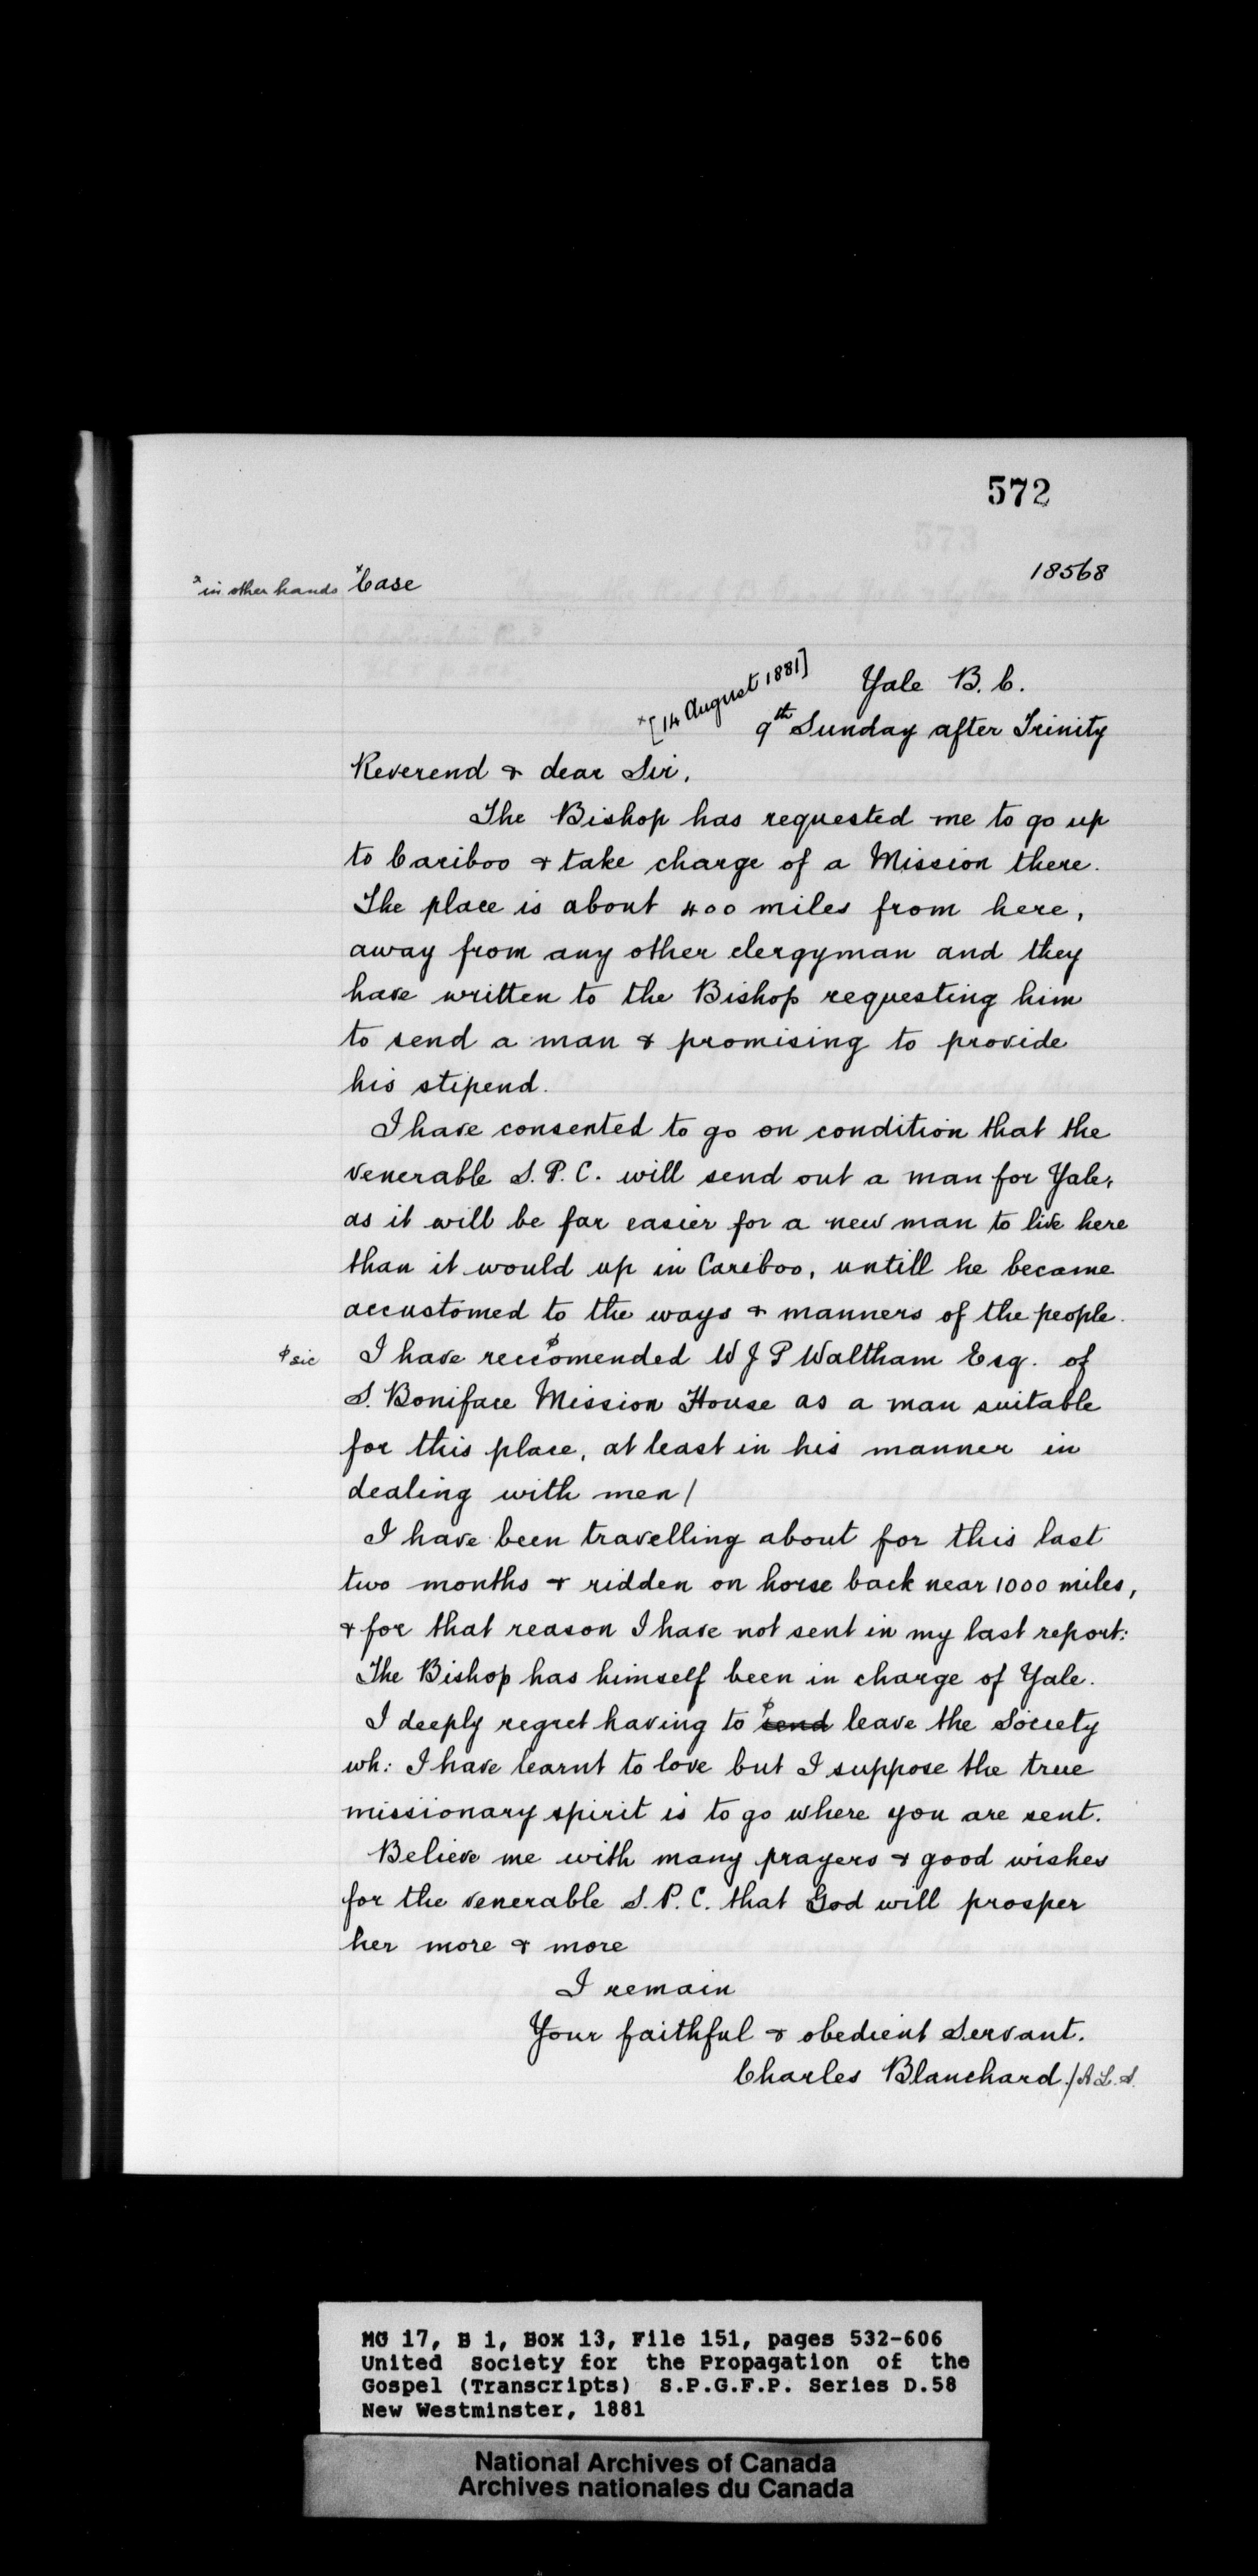 572
18568
*in other hands *Case
*[14 August 1881] Yale B.C.
9th Sunday after Trinity
Reverend & dear Sir,
The Bishop has requested me to go up
to Cariboo & take charge of a Mission there.
The place is about 400 miles from here,
away from any other clergyman and they
have written to the Bishop requesting him
to send a man & promising to provide
his stipend.
I have consented to go on condition that the
venerable S. P. C. will send out a man for Yale,
as it will be far easier for a new man to live here
than it would up in Cariboo, untill he became
accustomed to the ways & manners of the people.
φ sic I have reccφomended W J P Waltham Esq. of
S. Boniface Mission House as a man suitable
for this place, at least in his manner in
dealing with men/
I have been travelling about for this last
two months & ridden on horse back near 1000 miles,
& for that reason I have not sent in my last report:
The Bishop has himself been in charge of Yale.
I deeply regret having to φsend leave the Society
wh: I have learnt to love but I suppose the true
missionary spirit is to go where you are sent.
Believe me with many prayers & good wishes
for the venerable S. P. C. that God will prosper
her more & more
I remain
Your faithful & obedient Servant.
Charles Blanchard./A.L.S.
MG 17, B 1, Box 13, File 151, pages 532-606
United Society for the Propagation of the
Gospel (Transcripts) S.P.G.F.P. Series D.58
New Westminster, 1881
National Archives of Canada
Archives nationales du Canada